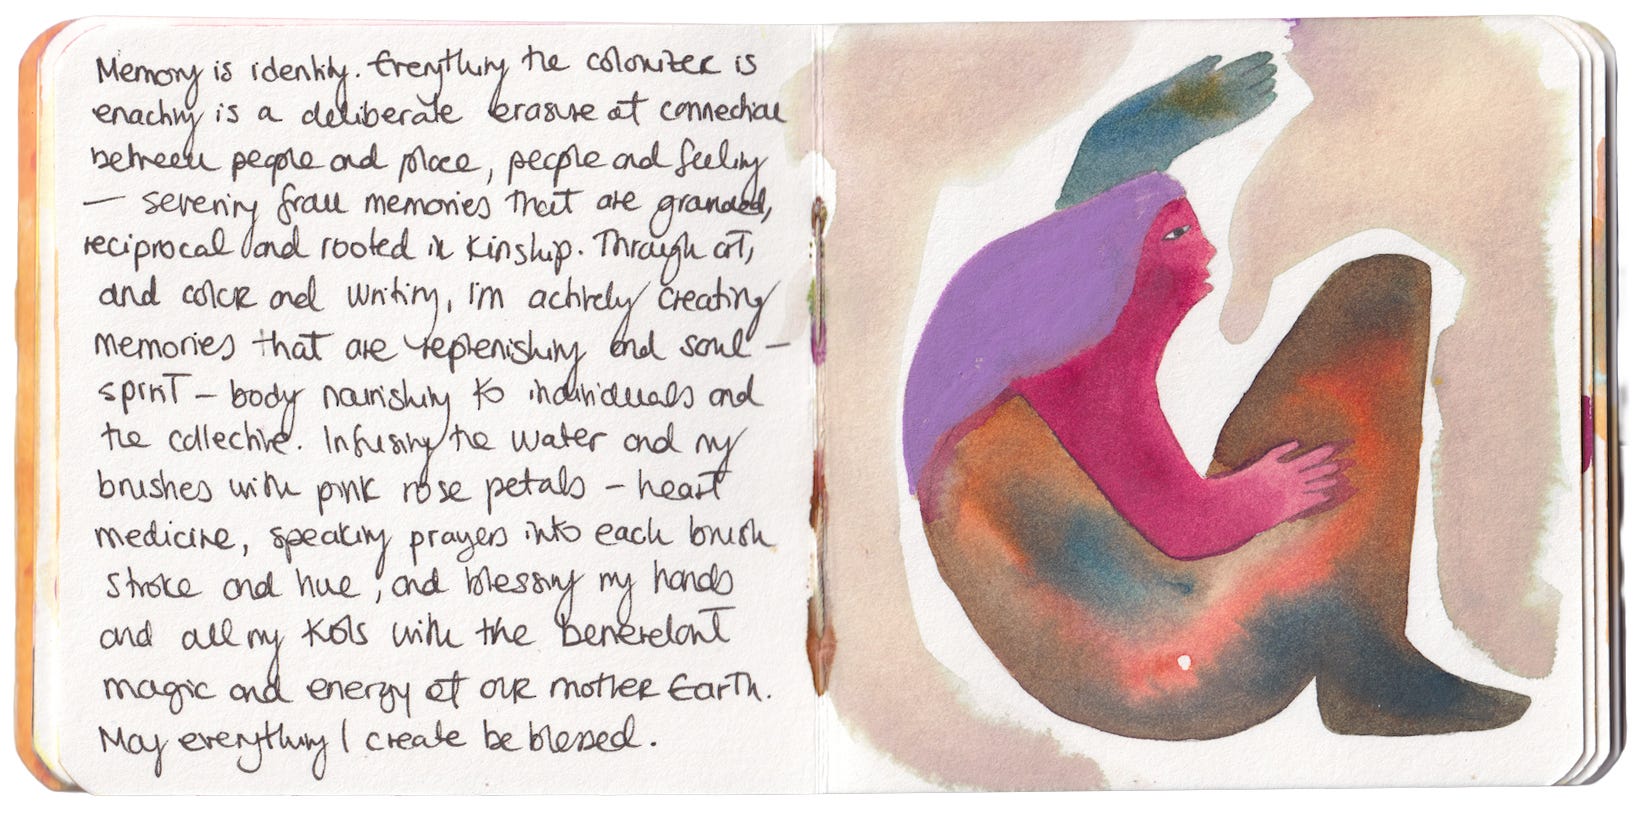 Memory is identity. Everything the colonizer is
enacting is a deliberate erasure of connection
between people and place, people and feeling
— severing from memories that are grounded,
reciprocal and rooted in kinship. Through art,
and color and writing, I'm actively creating
memories that are replenishing and soul —
spirit — body nourishing to individuals and
the collective. Infusing the water and my
brushes with pink rose petals — heart
medicine, speaking prayers into each brush
stroke and hue, and blessing my hands
and all my tools with the benevolent
magic and energy of our mother Earth.
May everything I create be blessed.